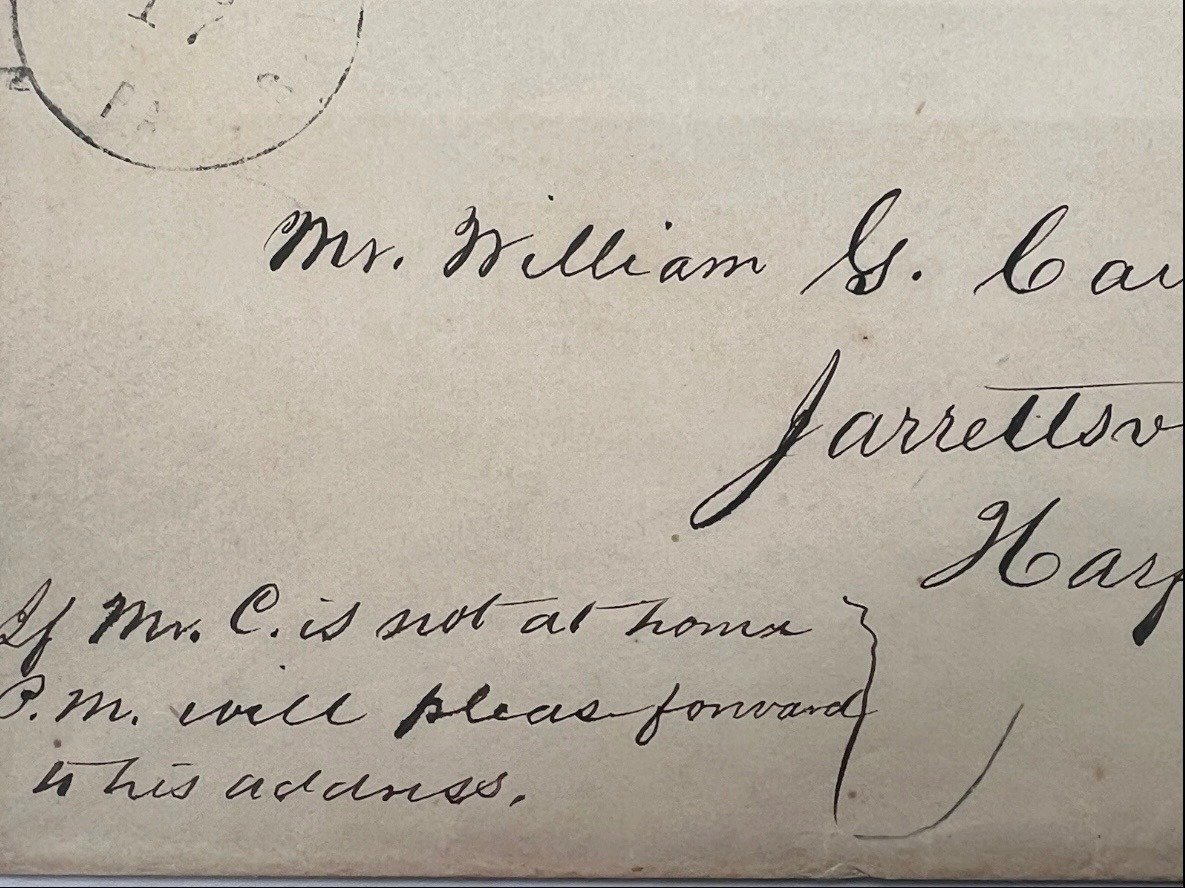 PA
Mr. William G. Car
Jarrettsv
Harf
If Mr. C. is not at home
P.M. will pleas forward
to his address.